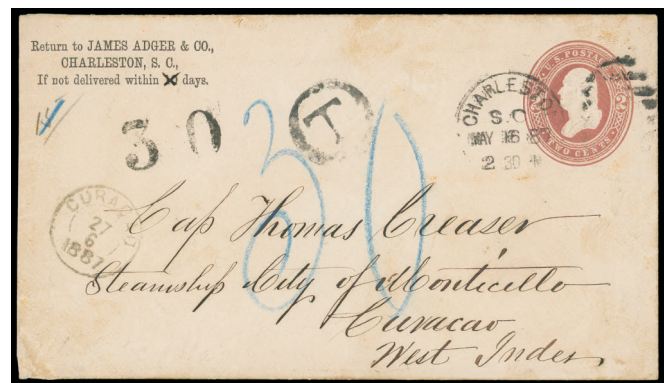 Return to JAMES ADGER & CO.,
CHARLESTON, S. C.,
If not delivered within days.
U.S. POSTAGE
TWO CENTS
CHARLESTON
S.C.
MAY 16
2 30
T
30
30
CURACAO
27
6
1887
Cap Thomas Creaser
Steamship City of Monticello
Curacao
West Indes